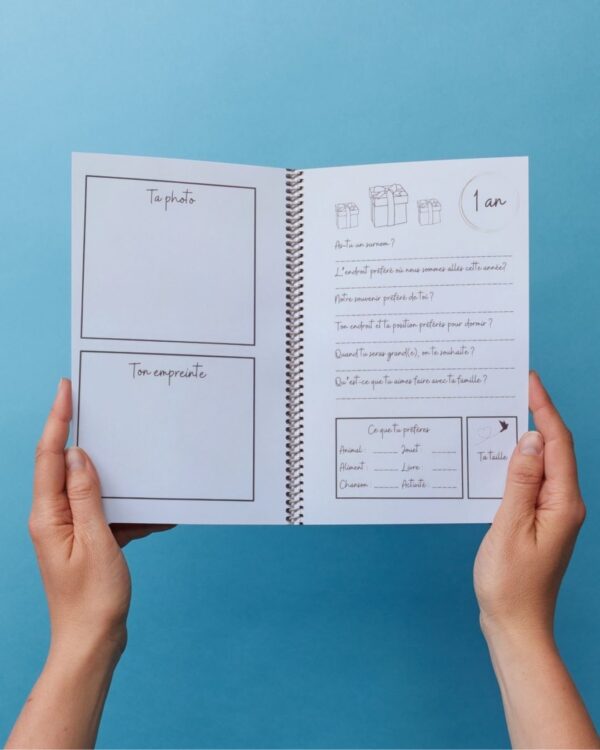 Ta photo
Ton empreinte
1 an
As-tu un surnom ?
L'endroit préféré où nous sommes allés cette année?
Notre souvenir préféré de toi ?
Ton endroit et ta position préférés pour dormir ?
Quand tu seras grand(e), on te souhaite ?
Qu'est-ce que tu aimes faire avec ta famille ?
Ce que tu préfères
Animal : Jouet :
Aliment : Livre :
Chanson : Activité :
Ta taille